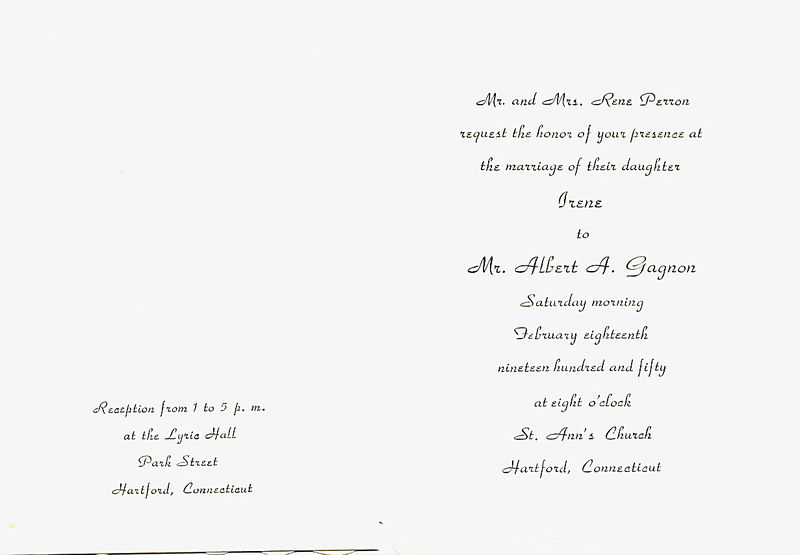 Mr. and Mrs. Rene Perron
request the honor of your presence at
the marriage of their daughter
Irene
to
Mr. Albert A. Gagnon
Saturday morning
February eighteenth
nineteen hundred and fifty
at eight o'clock
St. Ann's Church
Hartford, Connecticut
Reception from 1 to 5 p. m.
at the Lyric Hall
Park Street
Hartford, Connecticut